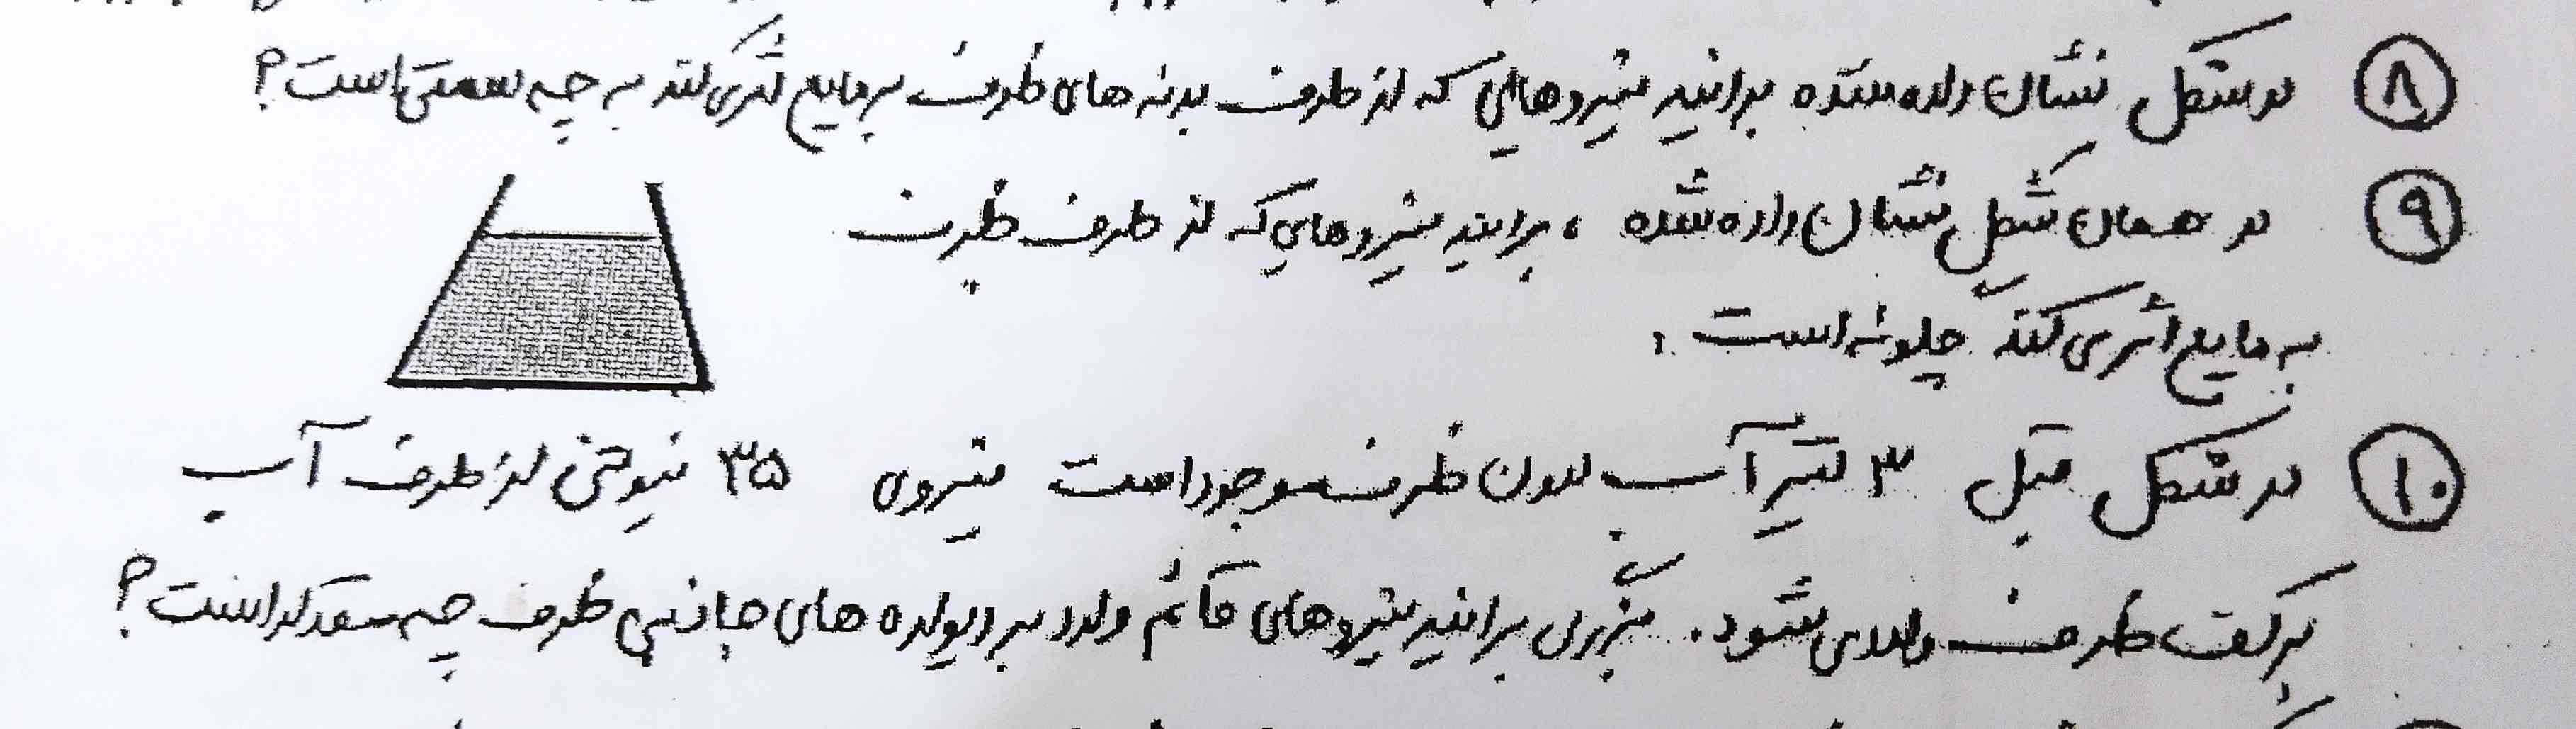 ۸ در شکل نشان داده شده برآیند نیروهایی که از طرف بدنه های ظرف بر مایع اثر می کند به چه سمتی است؟
۹ در همان شکل نشان داده شده ، برآیند نیروهایی که از طرف ظرف
به مایع اثر می کند چگونه است .
۱۰ در شکل قبل ۳ لیتر آب درون ظرف موجود است نیروی ۳۵ نیوتنی از طرف آب
بر کف ظرف وارد می شود . بزرگی برآیند نیروهای قائم وارد بر دیواره های جانبی ظرف چه مقدار است؟